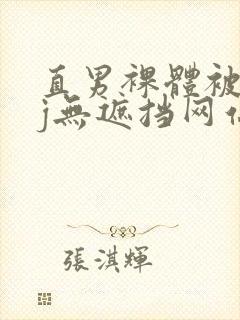 直男裸體被
j無遮挡网
張淇輝